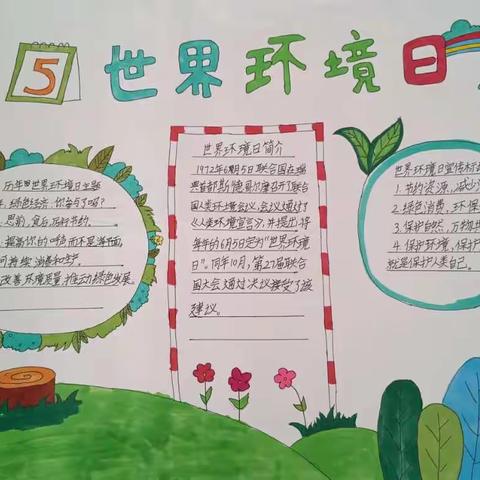 5 世界环境日
历年世界环境日主题
绿色经济,你参与了吗?
思前,食后,厉行节约。
提高你的呼声而不是海平面
可持续消费和生产。
改善环境质量,推动绿色发展。
世界环境日简介
1972年6月5日联合国在瑞
典首都斯德哥尔摩召开了联合
国人类环境会议,会议通过了
《人类环境宣言》,并提出将
每年的6月5日定为"世界环境
日"。同年10月,第27届联合
国大会通过决议接受了该
建议。
世界环境日宣传标
1.节约资源,减少
2.绿色消费,环保
3.保护自然,万物
4.保护环境,保护
就是保护人类自己。